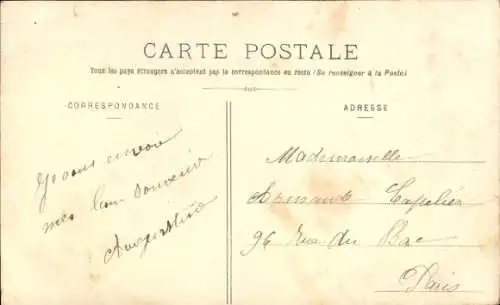 CARTE POSTALE
Tous les pays étrangers n'acceptent pas la correspondance au recto (Se renseigner à la Poste)
CORRESPONDANCE
ADRESSE
Je vous envoie
mes bon souvenir
Augustine
Mademoiselle
Armande
96 Rue du Bac
Paris